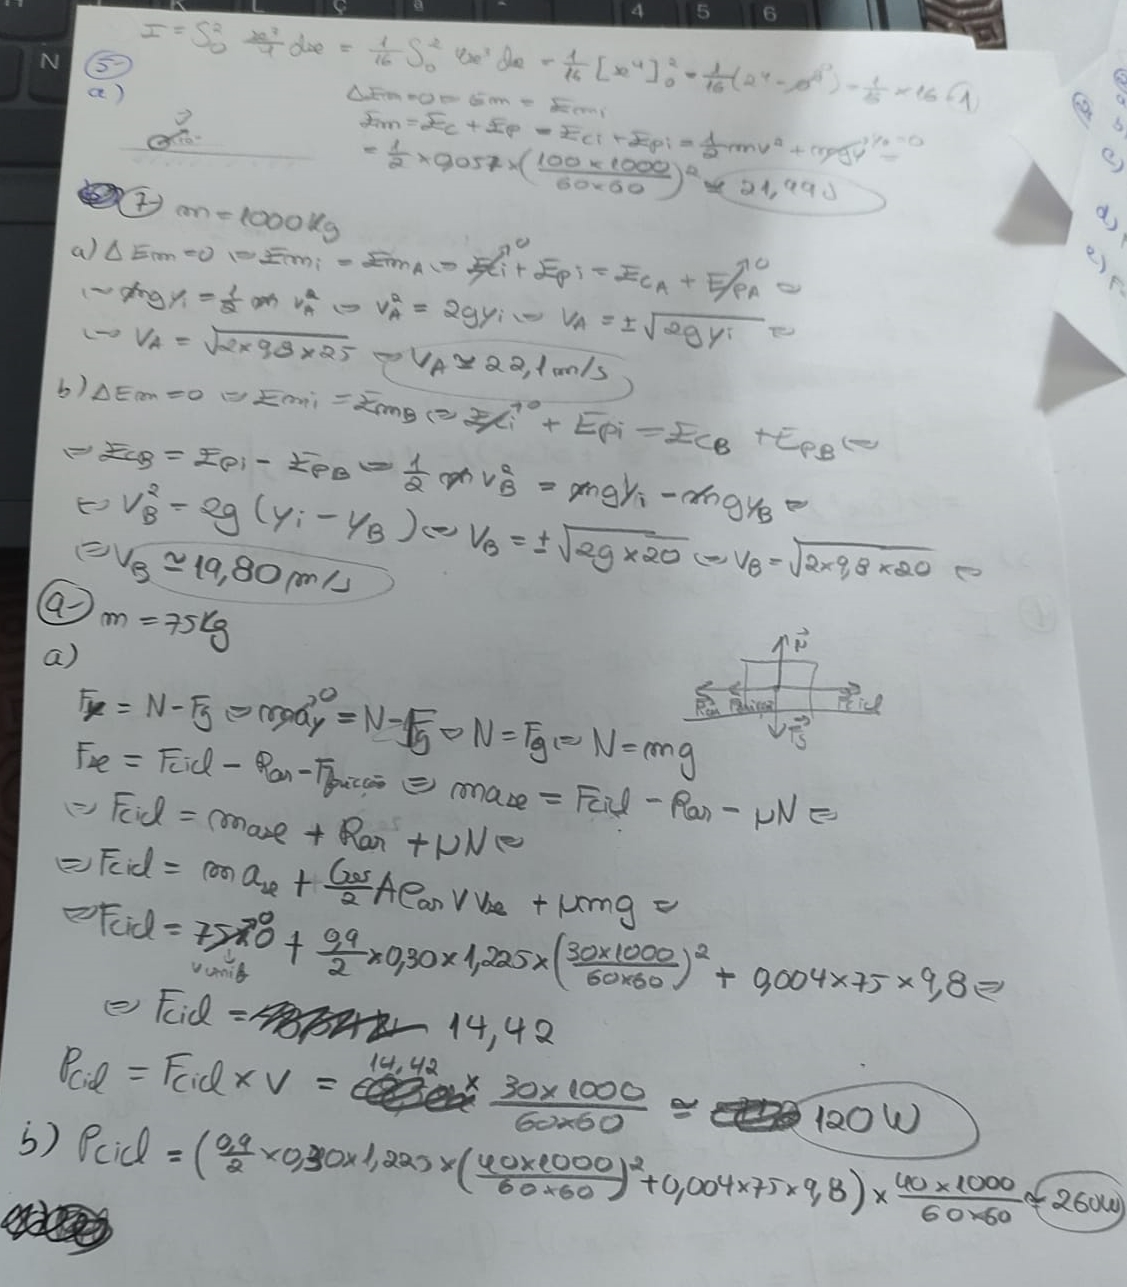 I = ∫₀² x³/4 dx = 1/16 ∫₀² 4x³ dx = 1/16 [x⁴]₀² = 1/16 (2⁴ - 0⁴) = 1/16 × 16 = 1
5-
a)
ΔEm = 0 ⇔ Em = Emi
Em = Ec + Ep = Eci + Epi = 1/2 mv² + mgy⁰ =
= 1/2 × 0,057 × (100 × 1000 / 60 × 60)² ≃ 21,99 J
7- m = 1000 Kg
a) ΔEm = 0 ⇔ Emi = EmA ⇔ Eci⁰ + Epi = EcA + EpA⁰ ⇔
⇔ mgyi = 1/2 m vA² ⇔ vA² = 2gyi ⇔ vA = ±√2gyi ⇔
⇔ vA = √2×9,8×25 ⇔ vA ≃ 22,1 m/s
b) ΔEm = 0 ⇔ Emi = EmB ⇔ Eci⁰ + Epi = EcB + EpB ⇔
⇔ EcB = Epi - EpB ⇔ 1/2 m vB² = mgyi - mgyB ⇔
⇔ vB² = 2g (yi - yB) ⇔ vB = ±√2g×20 ⇔ vB = √2×9,8×20 ⇔
⇔ vB ≃ 19,80 m/s
9- m = 75 Kg
a)
N
Rar Fricção Fcicl
Fg
Fy = N - Fg ⇔ may⁰ = N - Fg ⇔ N = Fg ⇔ N = mg
Fx = Fcicl - Rar - Ffricção ⇔ max = Fcicl - Rar - μN ⇔
⇔ Fcicl = max + Rar + μN ⇔
⇔ Fcicl = max + Cres/2 A ρar v vx + μmg ⇔
⇔ Fcicl = 75×0⁰ + 0,9/2 × 0,30 × 1,225 × (30×1000 / 60×60)² + 0,004 × 75 × 9,8 ⇔
v unif
⇔ Fcicl = 14,42
Pcicl = Fcicl × v = 14,42 × 30×1000 / 60×60 ≃ 120 W
b) Pcicl = (0,9/2 × 0,30 × 1,225 × (40×1000 / 60×60)² + 0,004×75×9,8) × 40×1000 / 60×60 ≃ 260 W